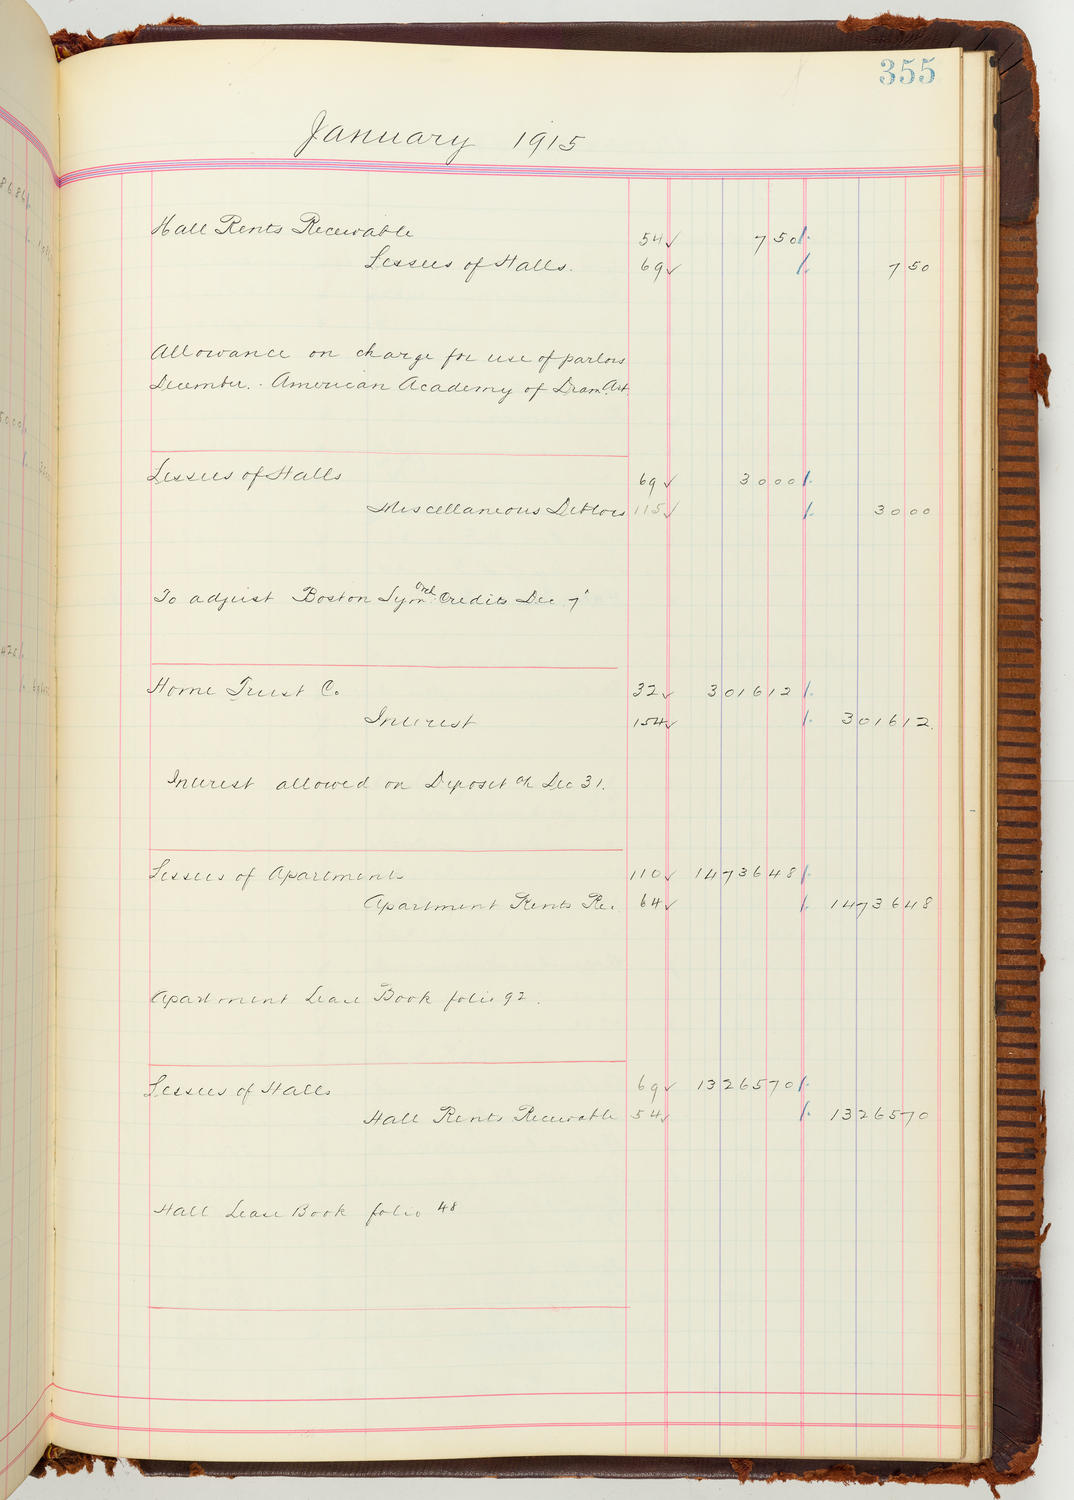 355
January 1915
Hall Rents Receivable 54 ✓ 750
Lessees of Halls. 69 ✓ 750
Allowance on charge for use of parlors
December. American Academy of Dram. Art.
Lessees of Halls 69 ✓ 3000
Miscellaneous Debtors 115 ✓ 3000
To adjust Boston Sym. Orch. Credits Dec 7
Home Trust Co. 32 ✓ 301612
Interest 154 ✓ 301612.
Interest allowed on Deposit Dec 31.
Lessees of Apartments 110 ✓ 1473648
Apartment Rents Re. 64 ✓ 1473648
Apartment Lease Book folio 92.
Lessees of Halls 69 ✓ 1326570
Hall Rents Receivable 54 ✓ 1326570
Hall Lease Book folio 48